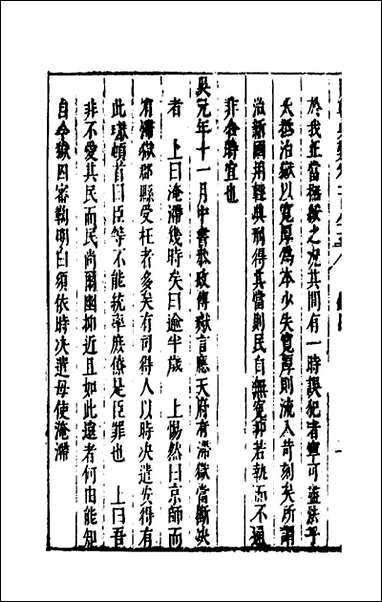 於我正當撫綏之況其間有一時誤犯者寧可盡法乎
大抵治獄以寬厚爲本少失寬厚則流入苛刻矣所謂
治新國用輕典刑得其當則民自無寃抑若執而不通
非合時宜也
吳元年十一月中書叅政傅瓛言應天府有滯獄當斷决
者　上曰淹滯幾時矣曰逾半歲　上惕然曰京師而
有滯獄郡縣受枉者多矣有司得人以時决遣安得有
此瓛頓首曰臣等不能統率庶僚是臣罪也　上曰吾
非不愛其民而民尚爾幽抑近且如此遠者何由能知
自今獄囚審勒明白須依時决遣毋使淹滯